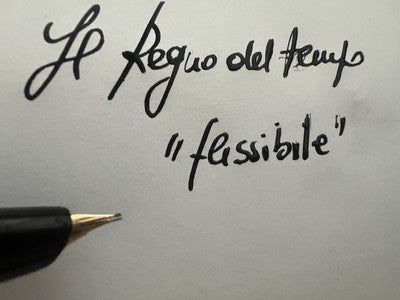 Il Regno del tempo
"flessibile"